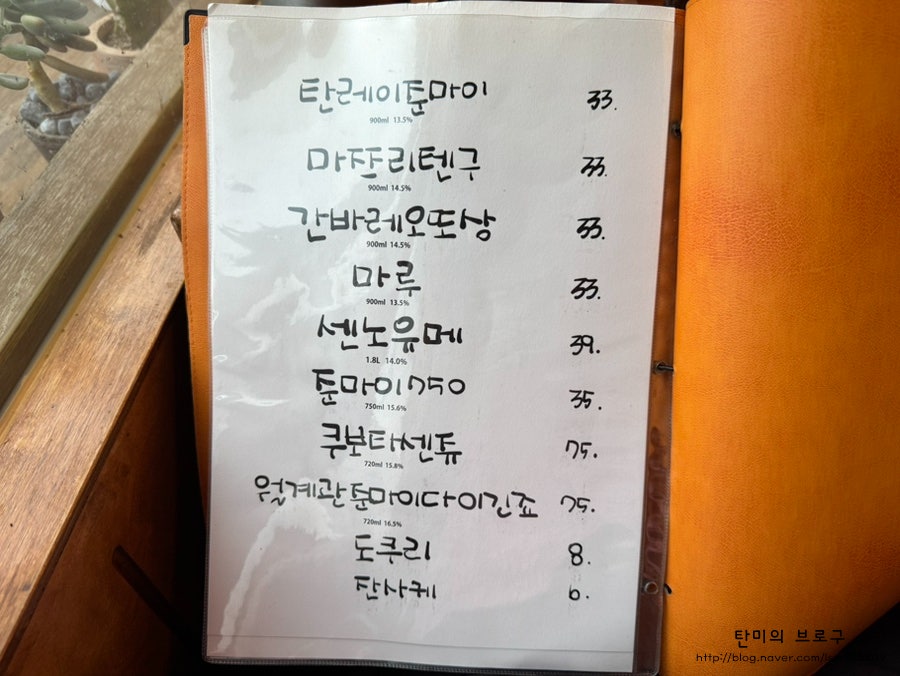 탄레이준마이 33.
900ml 13.5%
마쯔리텐구 33.
900ml 14.5%
간바레오또상 33.
900ml 14.5%
마루 33.
900ml 13.5%
센노유메 39.
1.8L 14.0%
준마이750 35.
750ml 15.6%
쿠보타센쥬 75.
720ml 15.8%
월계관준마이다이긴죠 75.
720ml 16.5%
도쿠리 8.
잔사케 6.
탄미의 브로구
http://blog.naver.com/